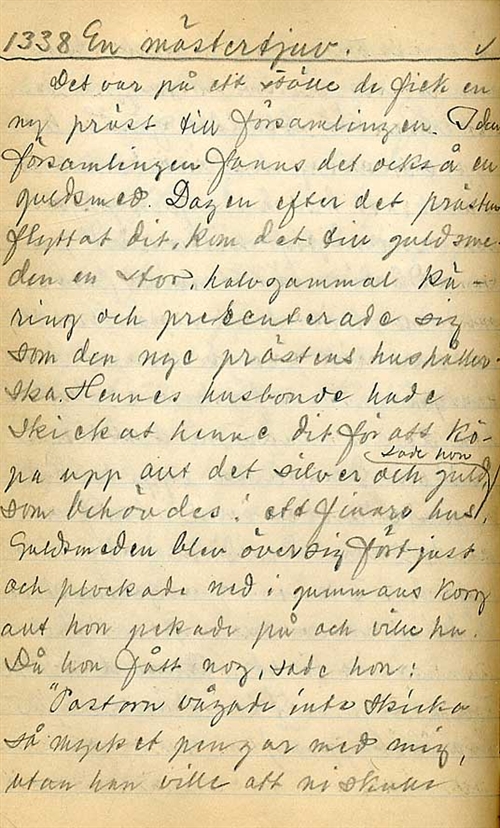 1338 En mästertjuv. ✓
Det var på ett ställe de fick en
ny präst till församlingen. I den
församlingen fanns det också en
guldsmed. Dagen efter det prästen
flyttat dit, kom det till guldsme-
den en stor, halvgammal kä-
ring och presenterade sig
som den nye prästens hushåller-
ska. Hennes husbonde hade
skickat henne dit för att kö-
sade hon
pa upp allt det silver och guld,
som behövdes i ett finare hus.
Guldsmeden blev översig förtjust
och plockade ned i gummans korg
allt hon pekade på och ville ha.
Då hon fått nog, sade hon:
"Pastorn vågade inte skicka
så mycket pengar med mig,
utan han ville att ni skulle